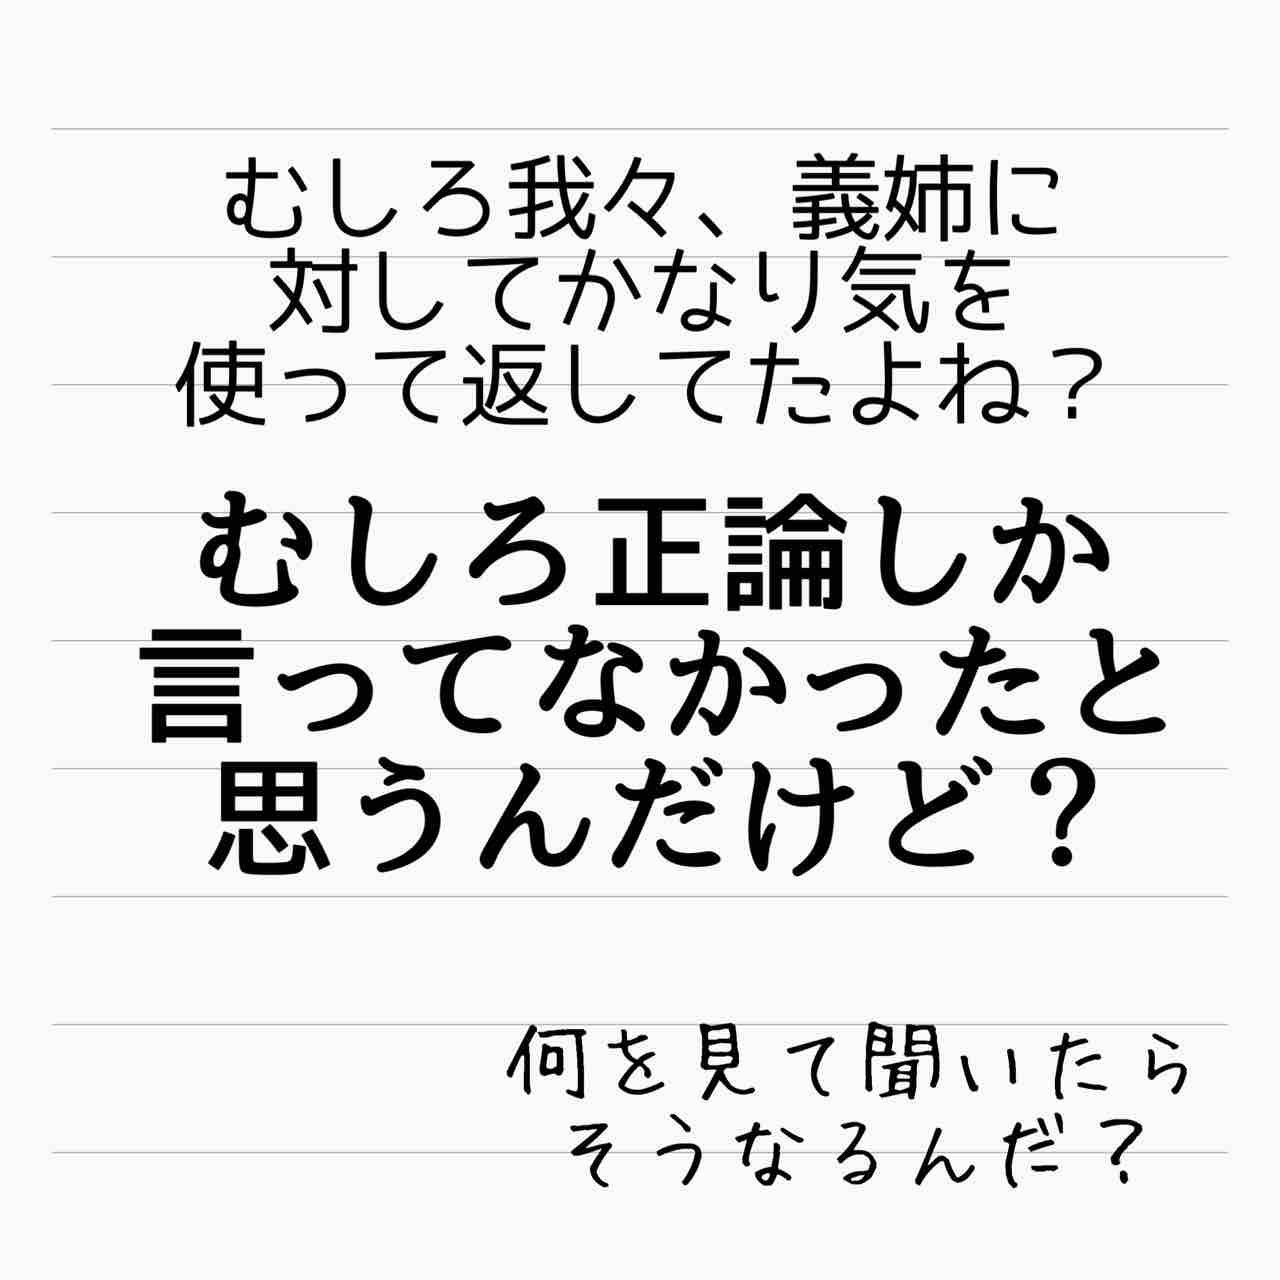 むしろ我々、義姉に
対してかなり気を
使って返してたよね？
むしろ正論しか
言ってなかったと
思うんだけど？
何を見て聞いたら
そうなるんだ？